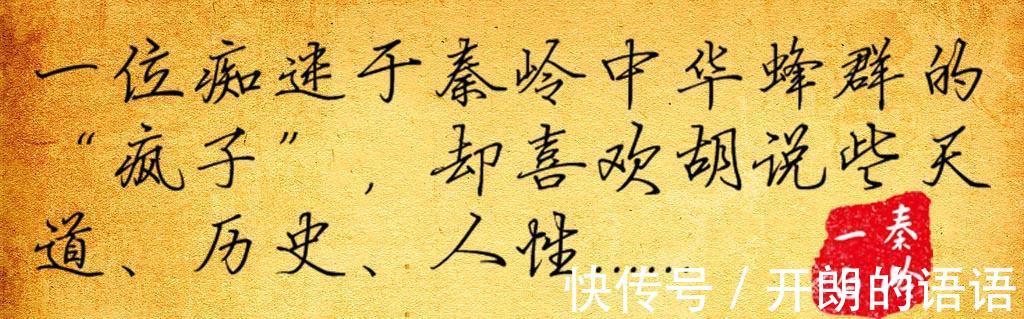 一位痴迷于秦岭中华蜂群的
“疯子”，却喜欢胡说些天
道、历史、人性……
秦
一
快传号 / 开朗的语语